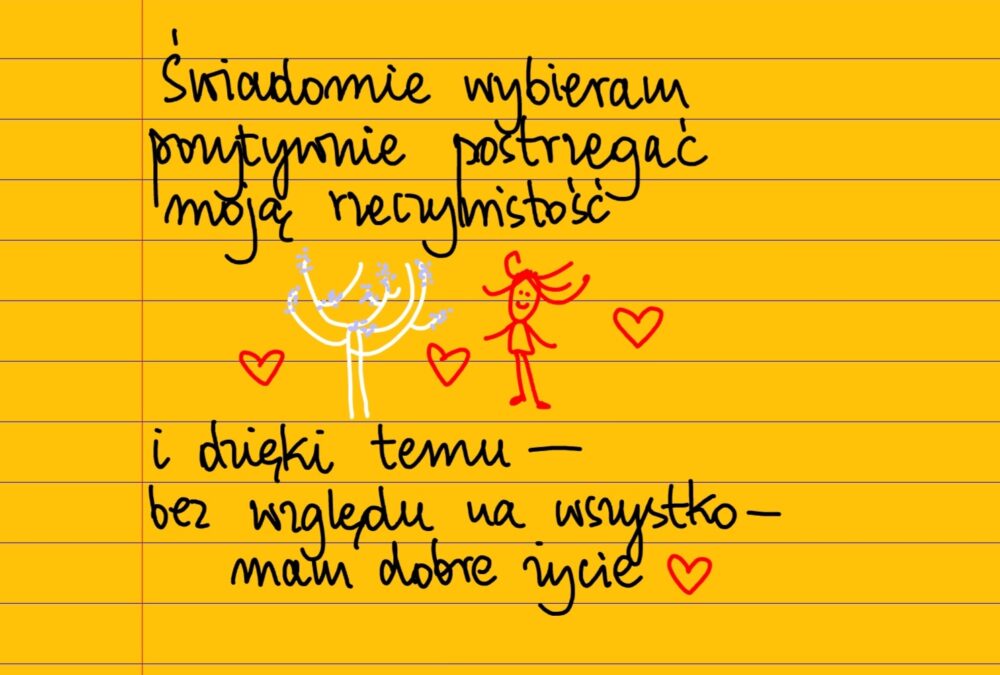 Świadomie wybieram
pozytywnie postrzegać
moją rzeczywistość
i dzięki temu —
bez względu na wszystko —
mam dobre życie